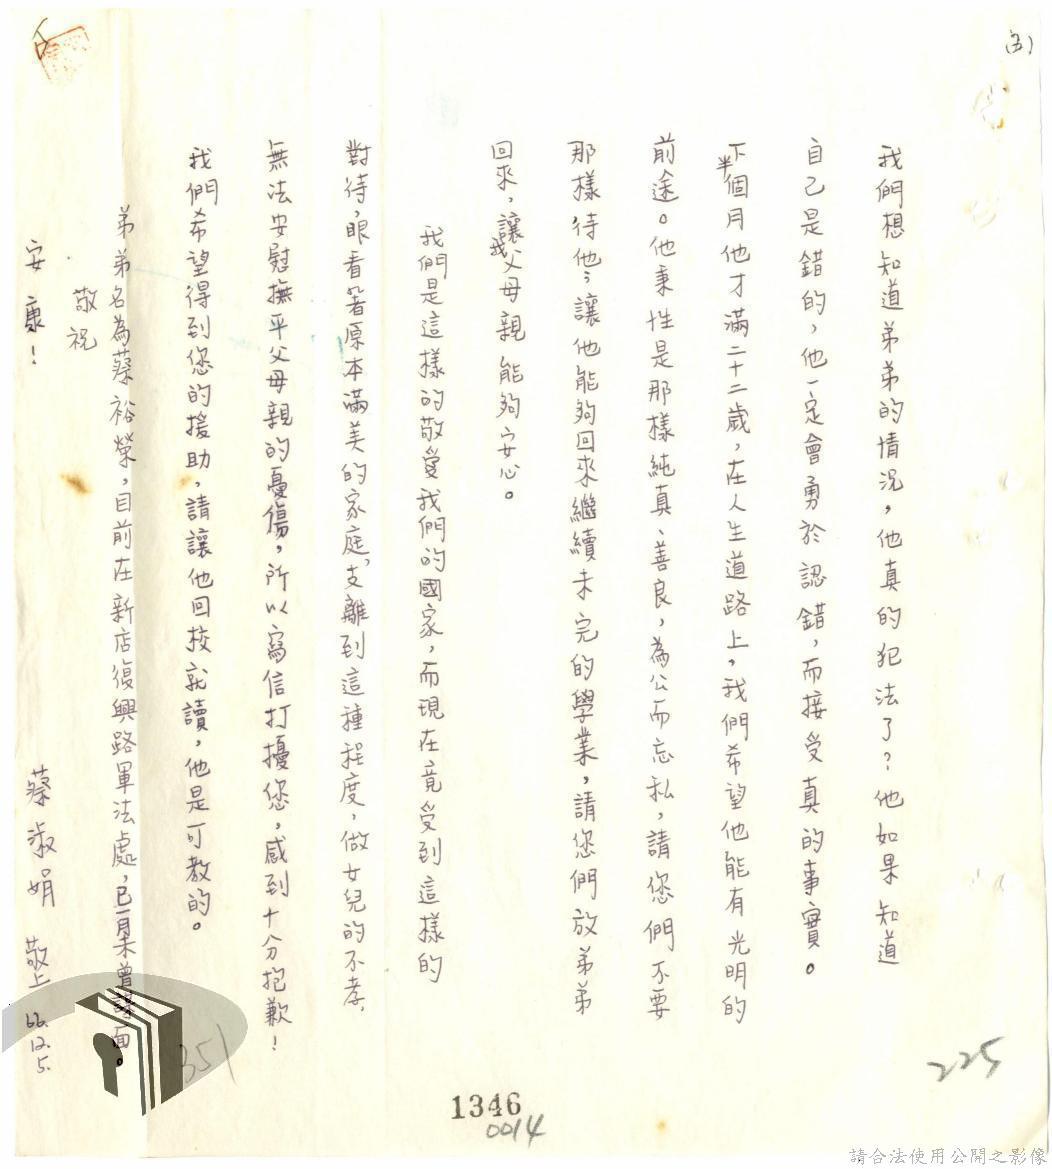 (五)
我們想知道弟弟的情況，他真的犯法了？他如果知道
自己是錯的，他一定會勇於認錯，而接受真的事實。
下半個月他才滿二十二歲，在人生道路上，我們希望他能有光明的
前途。他秉性是那樣純真、善良，為公而忘私，請您們不要
那樣待他；讓他能夠回來繼續未完的學業，請您們放弟弟
回來，讓我父母親能夠安心。
我們是這樣的敬愛我們的國家，而現在竟受到這樣的
對待，眼看著原本滿美的家庭，支離到這種程度，做女兒的不孝，
無法安慰撫平父母親的憂傷，所以寫信打擾您，感到十分抱歉！
我們希望得到您的援助，請讓他回校就讀，他是可教的。
弟弟名為蔡裕榮，目前在新店復興路軍法處，已一月未曾謀面。
敬祝
安康！
蔡淑娟 敬上 66.12.5.
351
225
1346
0014
請合法使用公開之影像